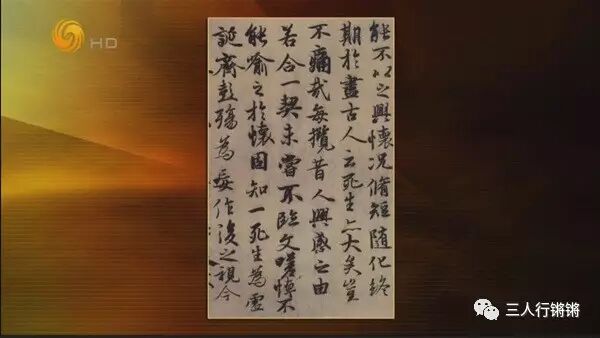 HD
能不以之興懷況脩短隨化終
期於盡古人云死生亦大矣豈
不痛哉每攬昔人興感之由
若合一契未嘗不臨文嗟悼不
能喻之於懷固知一死生為虛
誕齊彭殤為妄作後之視今
三人行锵锵